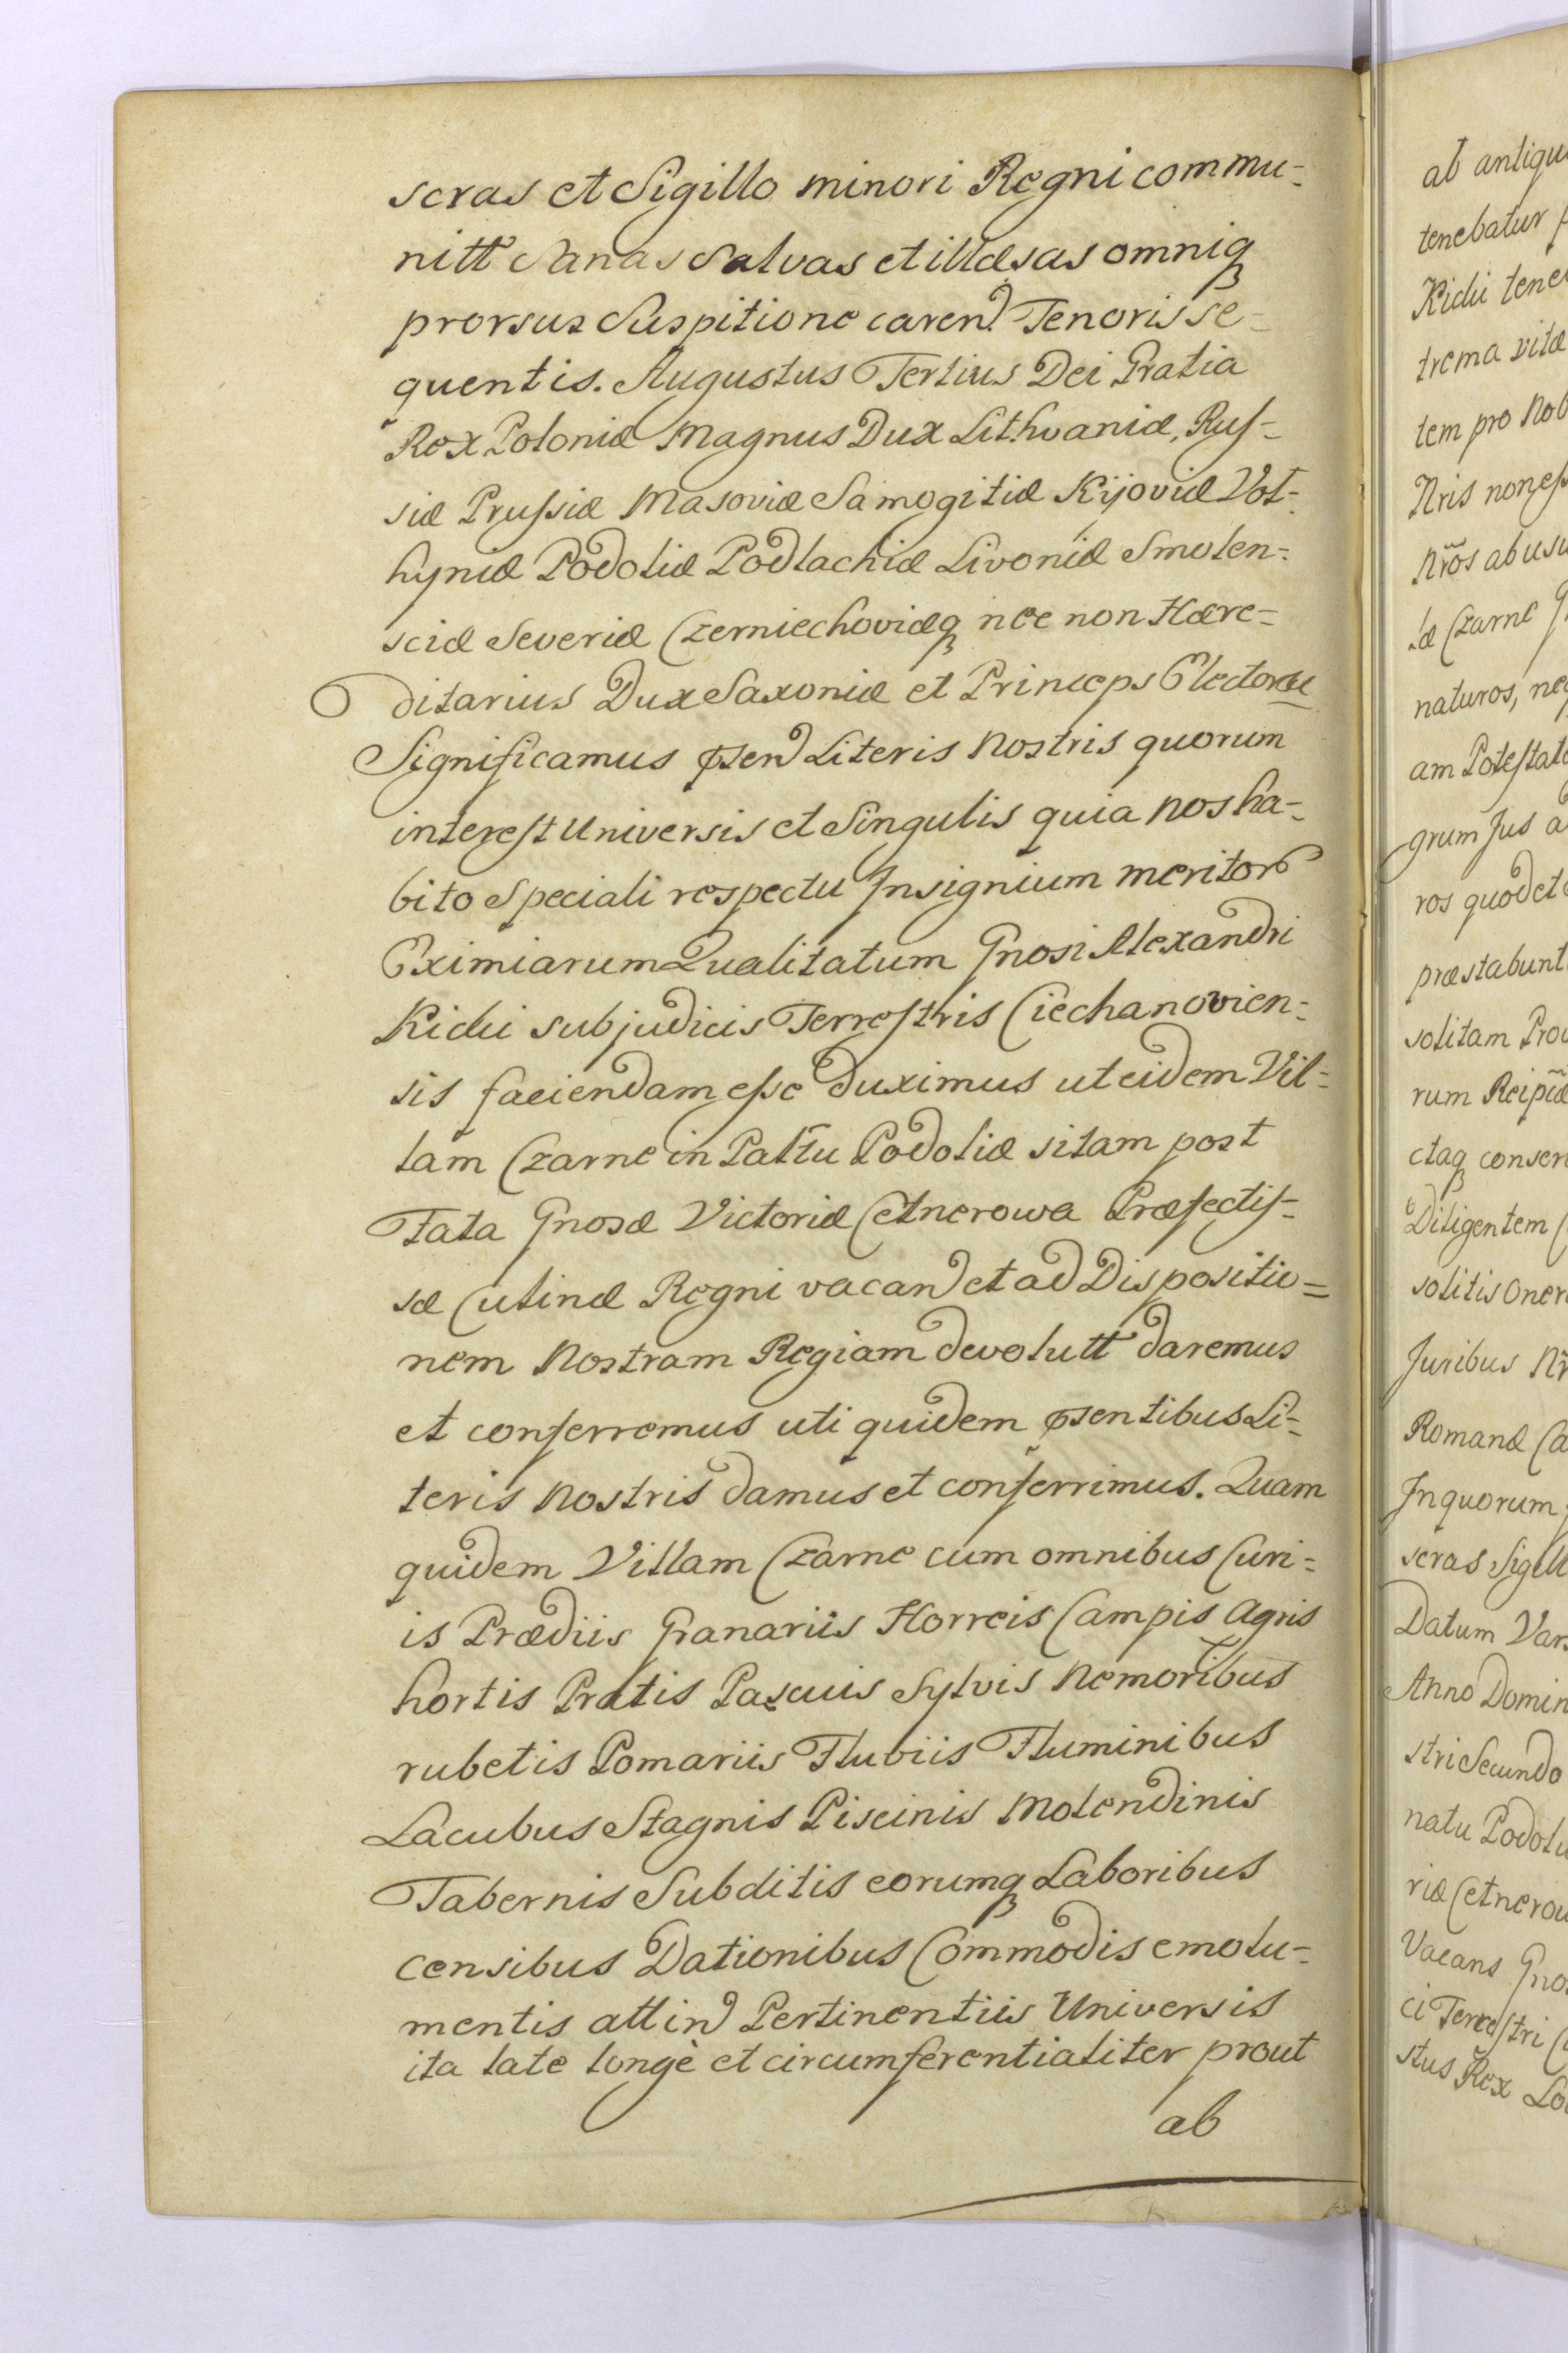 scras et Sigillo minori Regni commu-
nitt Sanas Salvas et illæsas omniq
prorsus Suspitione caren Tenoris se-
quentis. Augustus Tertius Dei Gratia
Rex Poloniæ Magnus Dux Lithvaniæ, Rus-
siæ Prussiæ Masoviæ Samogitiæ Kijoviæ Vol-
hyniæ Podoliæ Podlachiæ Livoniæ Smolen-
sciæ Severiæ Czerniechoviæq nec non Hære-
ditarius Dux Saxoniæ et Princeps Elector
Significamus psen Literis Nostris quorum
interest Universis et Singulis quia Nos ha-
bito Speciali respectu Insignium meritor
Eximiarum Qualitatum Gnosi Alexandri
Kicki subjudicis Terrestris Ciechanovien-
sis faciendam esse duximus ut eidem Vil-
lam Czarne in Pallu Podoliæ sitam post
Fata Gnosæ Victoriæ Cetnerowa Præfectis-
sæ Culinæ Regni vacan et ad Dispositio=
nem Nostram Regiam devolutt daremus
et conferremus uti quidem psentibus Li-
teris Nostris damus et conferrimus. Quam
quidem Villam Czarne cum omnibus Curi-
is Prædiis Granariis Horreis Campis Agris
hortis Pratis Pascuis Sylvis Nemoribus
rubetis Pomariis Fluviis Fluminibus
Lacubus Stagnis Piscinis Molendinis
Tabernis Subditis eorumq Laboribus
censibus Dationibus Commodis emolu-
mentis attin Pertinentiis Universis
ita late longè et circumferentialiter prout
ab
ab antiqu
tenebatur
Kicki tene
trema vitæ
tem pro Nob
Nris non ess
Nros ab usu
læ Czarne
naturos, ne
am Potestat
grum Jus a
ros quod et
præstabunt
solitam Pro
rum Reipu
ctaq conser
Diligentem
solitis Oner
Juribus Nr
Romanæ Ca
In quorum
scras Sigill
Datum Var
Anno Domin
stri Secundo
natu Podol
riæ Cetnerow
Vacans Gno
ci Terrestri
stus Rex Lo